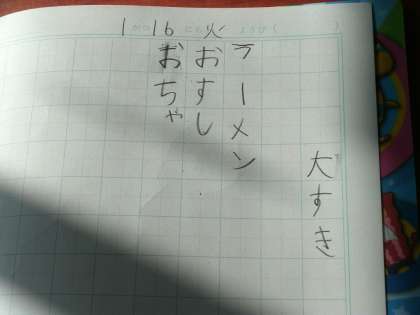 1がつ16にち火ようび( )
大すき
ラーメン
おすし
おちゃ